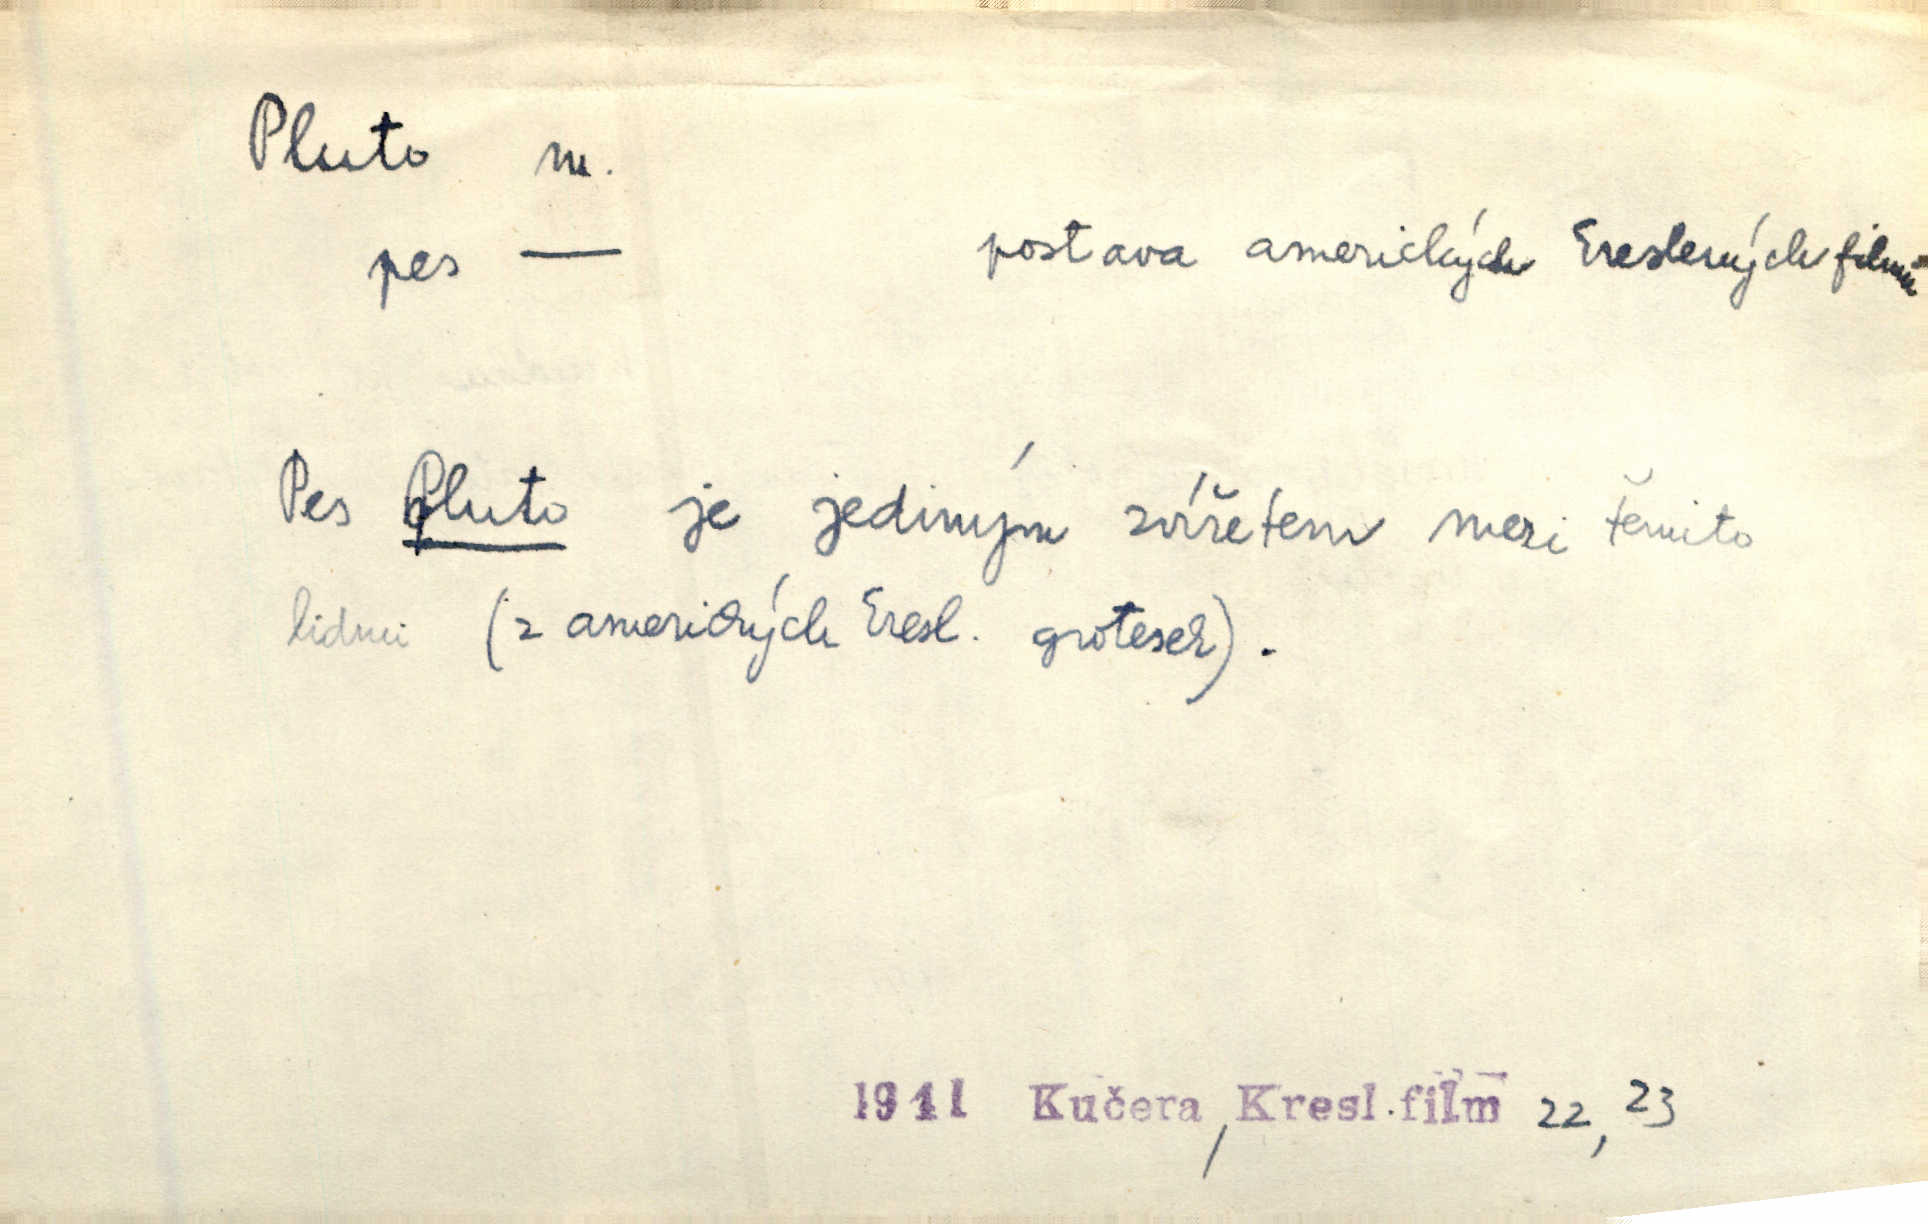 Pluto m.
pes — postava amerických kreslených filmů
Pes Pluto je jediným zvířetem mezi těmito
lidmi (z amerických kresl. grotesek).
1941 Kučera, Kresl. film 22, 23